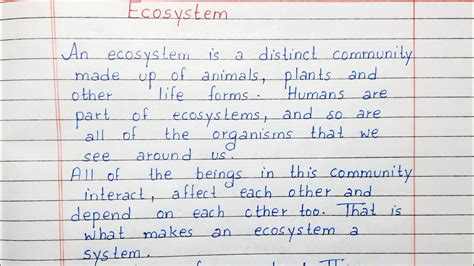 Ecosystem
An ecosystem is a distinct community
made up of animals, plants and
other life forms. Humans are
part of ecosystems, and so are
all of the organisms that we
see around us.
All of the beings in this community
interact, affect each other and
depend on each other too. That is
what makes an ecosystem a
system.